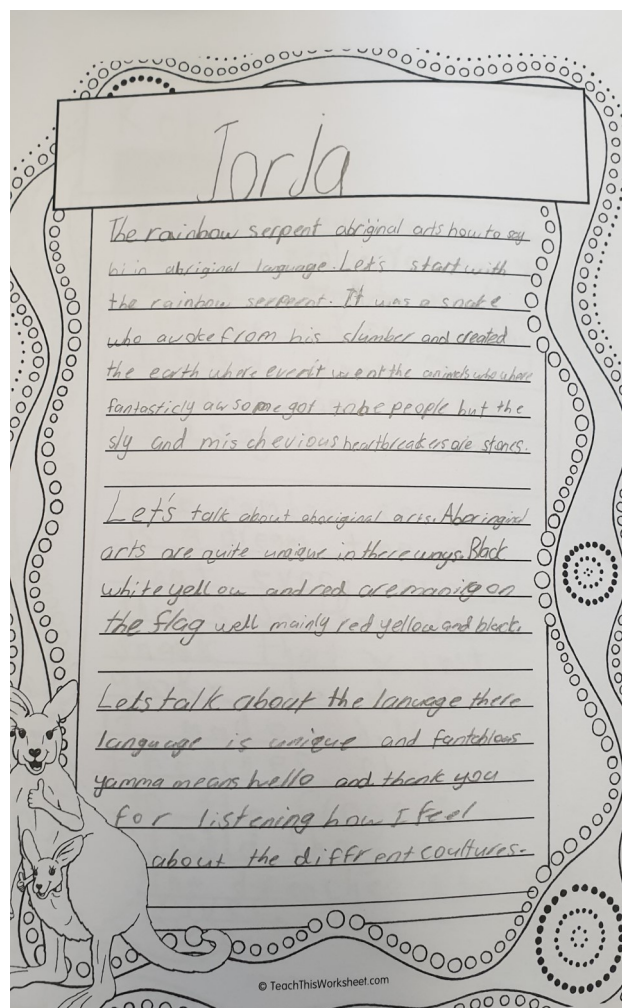 Jorja
The rainbow serpent abriginal arts how to say
hi in abriginal language. Let's start with
the rainbow serpernt. It was a snake
who awoke from his slumber and created
the earth where everit went the animals who where
fantasticly awsome got to be people but the
sly and mischevious heartbreakers are stones.
Let's talk about aboriginal arts. Aboringinal
arts are quite unique in there ways. Black
white yellow and red are on
the flag well mainly red yellow and black.
Lets talk about the lanuage there
language is unique and fantablous
yamma means hello and thank you
for listening how I feel
about the diffrent coultures.
© TeachThisWorksheet.com